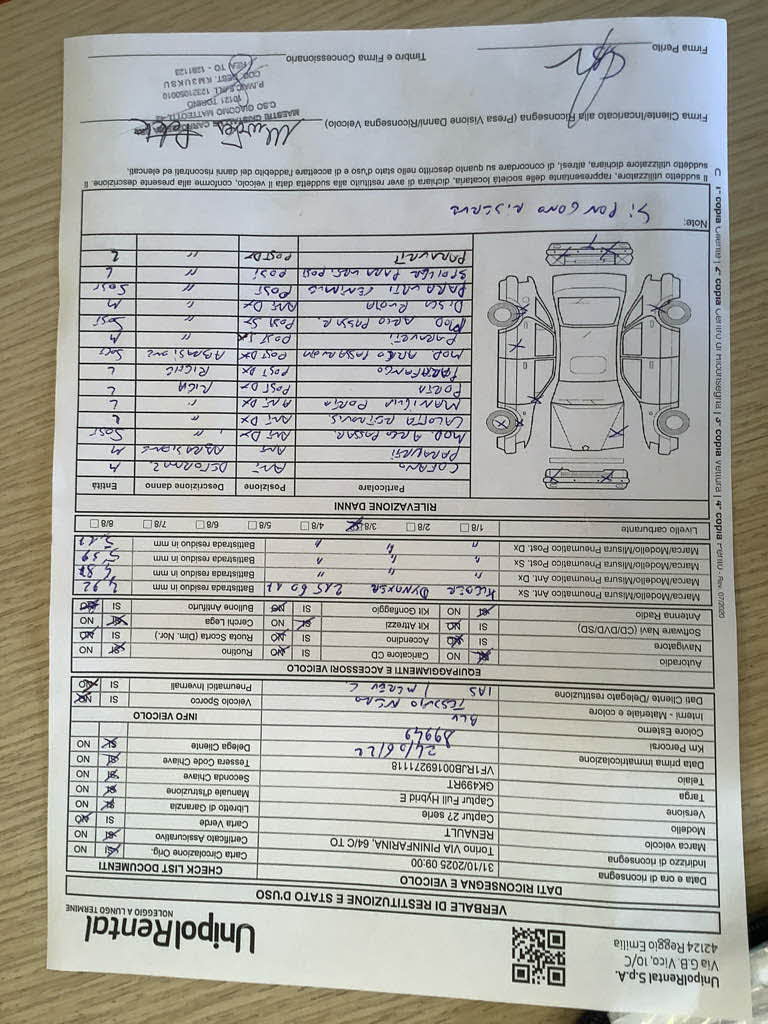 UnipolRental S.p.A.
Via G.B. Vico, 10/C
42124 Reggio Emilia
UnipolRental
NOLEGGIO A LUNGO TERMINE
VERBALE DI RESTITUZIONE E STATO D'USO
DATI RICONSEGNA E VEICOLO
CHECK LIST DOCUMENTI
Data e ora di riconsegna 31/10/2025 09:00 Carta Circolazione Orig. SI NO
Indirizzo di riconsegna Torino VIA PININFARINA, 64/C TO Certificato Assicurativo SI NO
Marca veicolo RENAULT Carta Verde SI NO
Modello Captur 2ª serie Libretto di Garanzia SI NO
Versione Captur Full Hybrid E Manuale d'Istruzione SI NO
Targa GK499RT Seconda Chiave SI NO
Telaio VF1RJB00169271118 Tessera Code Chiave SI NO
Data prima immatricolazione 24/06/22 Delega Cliente SI NO
Km Percorsi 89949
INFO VEICOLO
Colore Esterno BLU
Interni - Materiale e colore TESSUTO NERO Veicolo Sporco SI NO
Dati Cliente /Delegato restituzione Pneumatici Invernali SI NO
EQUIPAGGIAMENTI E ACCESSORI VEICOLO
Autoradio SI NO Caricatore CD SI NO Ruotino SI NO
Navigatore SI NO Accendino SI NO Ruota Scorta (Dim. Nor.) SI NO
Software Navi (CD/DVD/SD) SI NO Kit Attrezzi SI NO Cerchi Lega SI NO
Antenna Radio SI NO Kit Gonfiaggio SI NO Bullone Antifurto SI NO
Marca/Modello/Misura Pneumatico Ant. Sx KLEBER DYNAXER 215 60 17 Battistrada residuo in mm 4,92
Marca/Modello/Misura Pneumatico Ant. Dx " " " Battistrada residuo in mm
Marca/Modello/Misura Pneumatico Post. Sx " " " Battistrada residuo in mm 5,59
Marca/Modello/Misura Pneumatico Post. Dx " " " Battistrada residuo in mm
Livello carburante 1/8 2/8 3/8 4/8 5/8 6/8 7/8 8/8
RILEVAZIONE DANNI
Particolare Posizione Descrizione danno Entità
COFANO ANT DEFORMAZ M
PARAURTI ANT ABRASIONE M
MOD. ARCO PASSAR. ANT DX " SOST
CALOTTA RETROVIS ANT DX " L
MANIGLIA PORTA ANT DX " L
PORTA POST DX RIGA L
PARAFANGO POST DX RIGHE L
MOD. ARCO PASSARUOTA POST DX ABRASIONE SOST
PARAURTI POST DX " M
MOD ARCO PASSAR. POST SX " SOST
DISCO RUOTA ANT DX " M
PARAURTI CENTRALE POST " SOST
SPOILER PARAURTI POST POST " L
PARAURTI POST DX " L
Note:
SI PONGONO RISERVE
Il suddetto utilizzatore, rappresentante delle società locataria, dichiara di aver restituito alla suddetta data il veicolo, conforme alla presente descrizione. Il
suddetto utilizzatore dichiara, altresì, di concordare su quanto descritto nello stato d'uso e di accettare l'addebito dei danni riscontrati ed elencati.
Firma/Cliente/Incaricato alla Riconsegna (Presa Visione Danni/Riconsegna Veicolo)
C.SO GIACOMO MATTEOTTI, 42
10121 TORINO
P.IVA/C.F. 12321050010
COD. DEST. KM3UK8U
REA TO - 1281123
Firma Perito
Timbro e Firma Concessionario
1ª copia Cliente | 2ª copia Centro di riconsegna | 3ª copia vettura | 4ª copia Perito - Rev. 07/2020